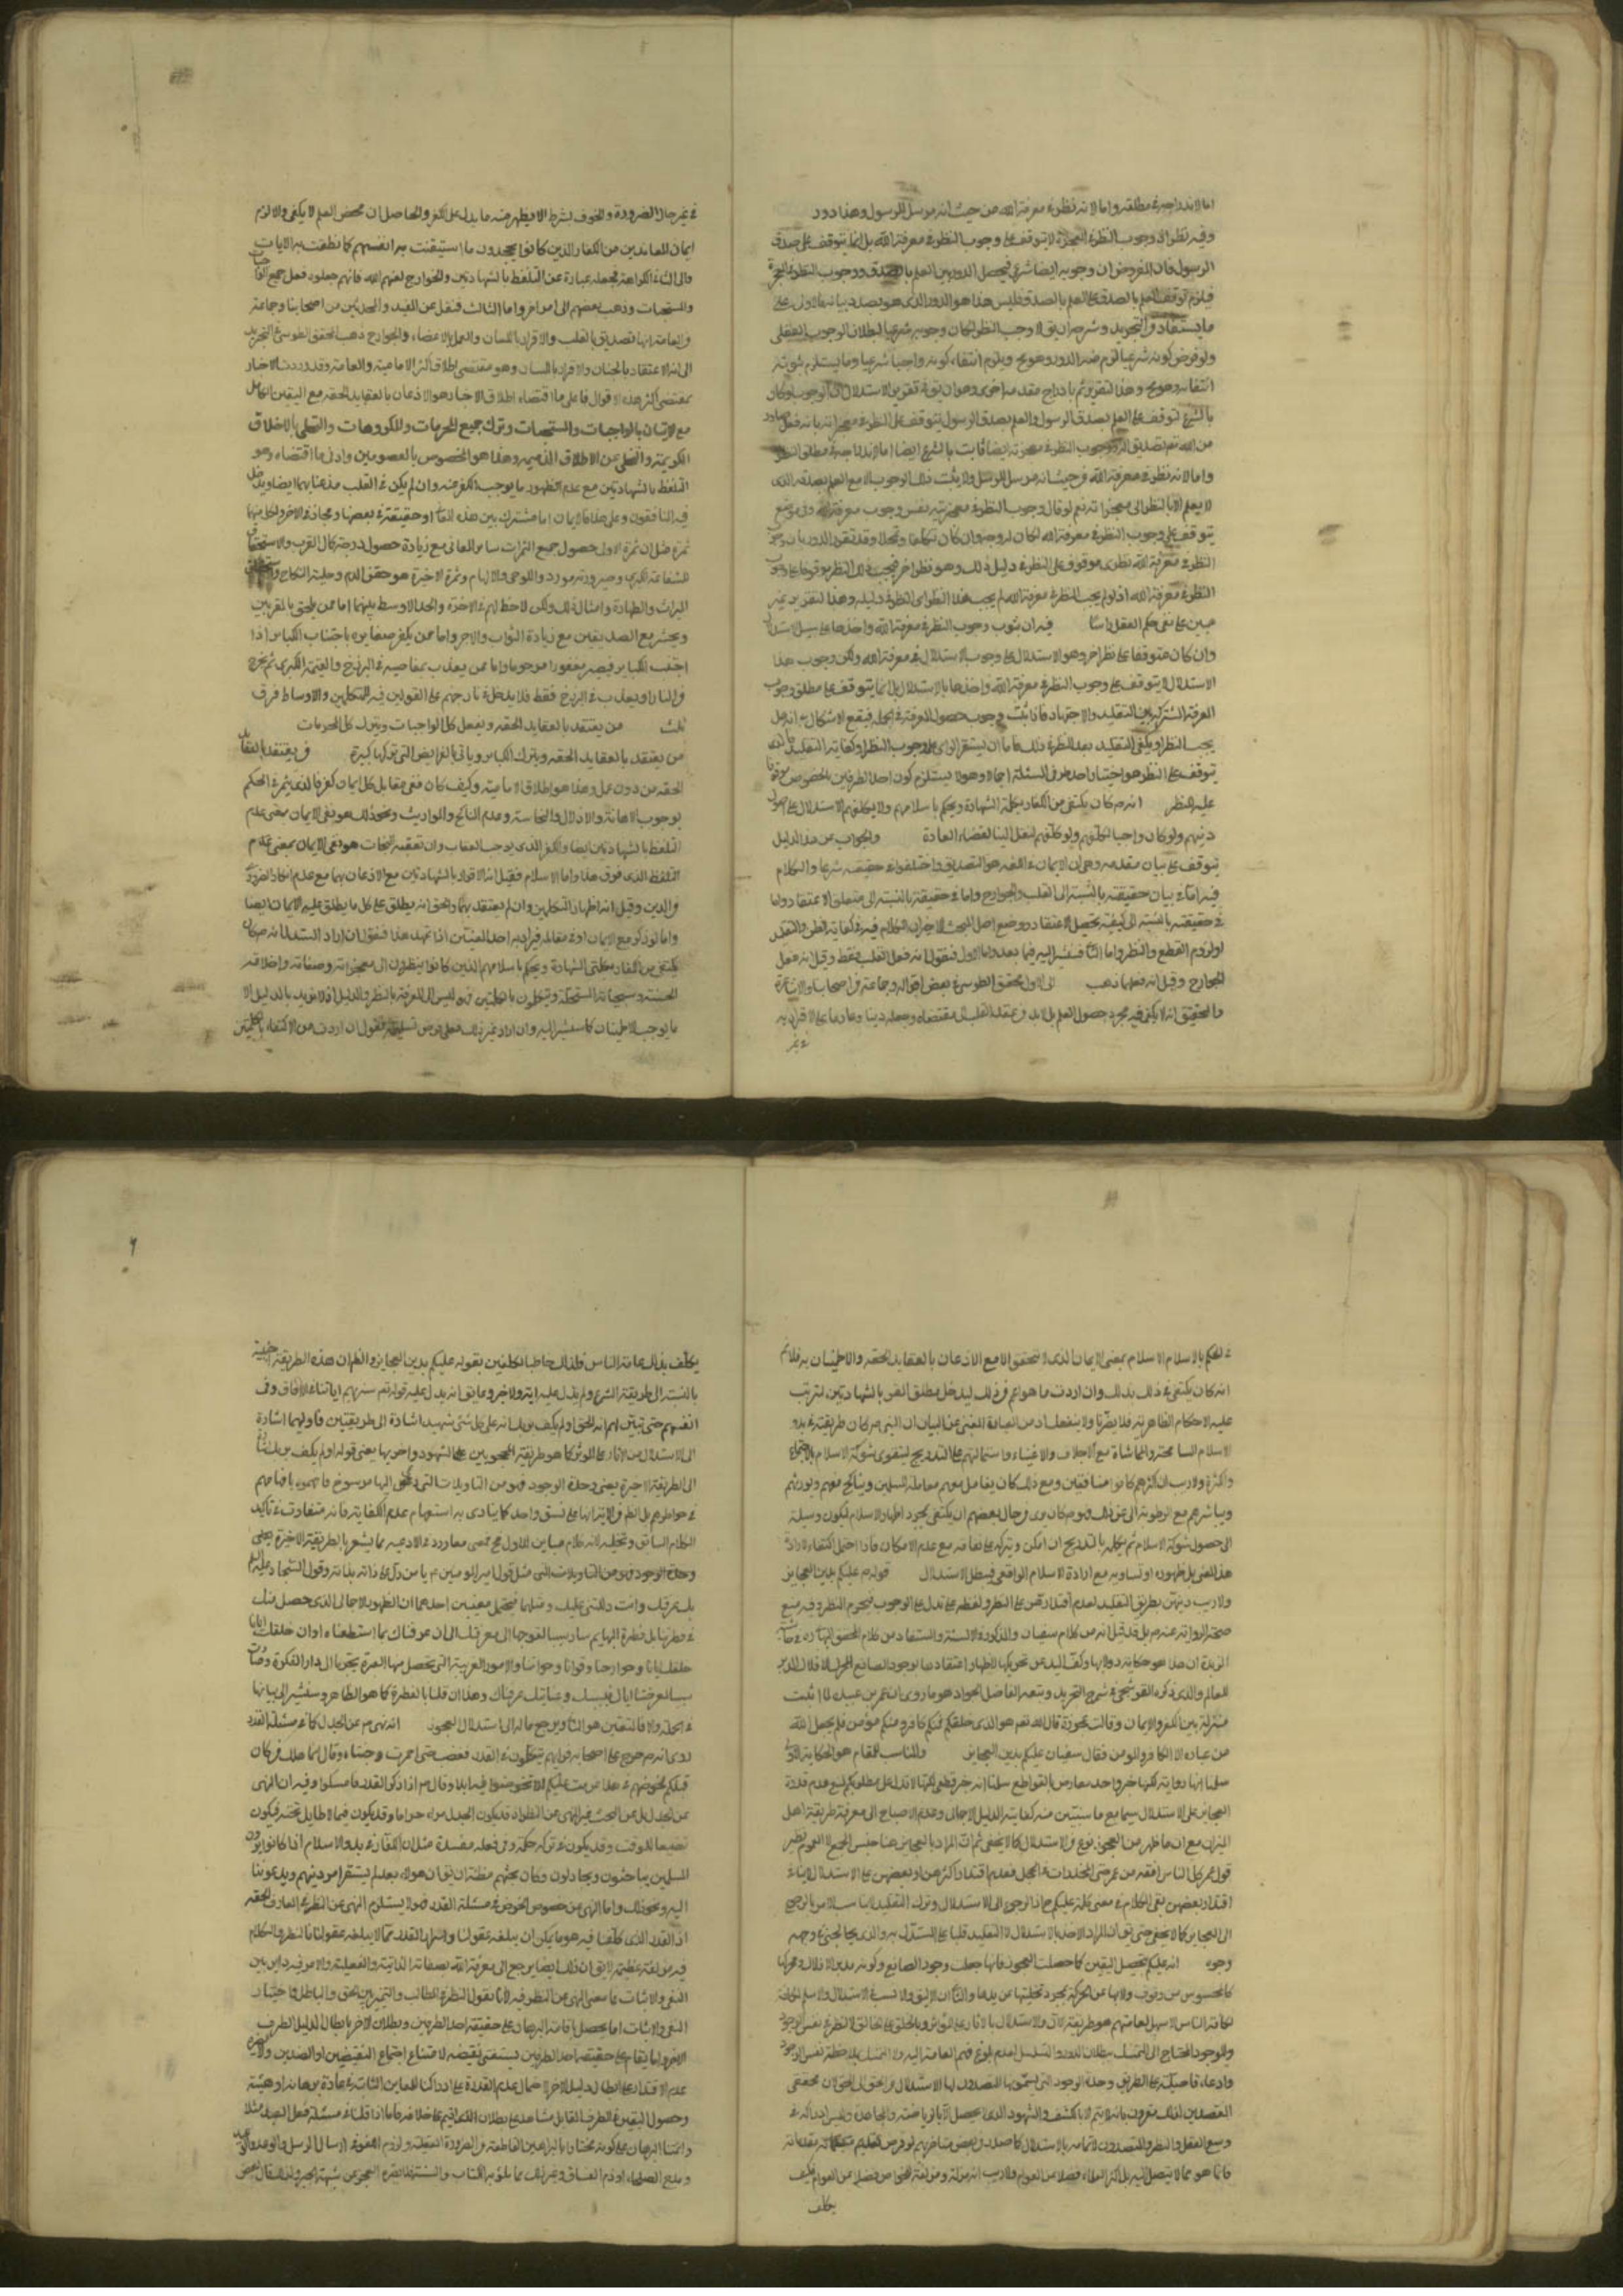 اما لاندراجه في مطلقه واما لانه نظر في معرفة الله من حيث انه مرسل الرسول وهذا دور
وفيه نظر اذ وجوب النظر في المعجزة لا يتوقف على وجوب النظر في معرفة الله بل انما يتوقف على صدق
الرسول فان المفروض ان وجوبه ايضا شرعي فيحصل الدور بين العلم بالصدق ووجوب النظر في المعجزة
فيلزم توقف العلم بالصدق على العلم بالصدق فليس هذا هو الدور الذي هو بصدد بيانه فالاولى على
ما يستفاد من التجريد وشرحه ان يق لا وجب النظر لكان وجوبه شرعيا لبطلان الوجوب العقلي
ولو فرض كونه شرعيا لزم منه الدور وهو مح ويلزم انتفاء كونه واجبا شرعيا وما يستلزم ثبوته
انتفائه وهو مح وهذا التقرير تم بادراج مقدمة اخرى وهو ان يق في تقرير الاستدلال ان الوجوب لو كان
بالشرع لتوقف على العلم بصدق الرسول والعلم بصدق الرسول يتوقف على النظر في معجزاته بانه فعل صادر
من الله تعم تصديق الرسول ووجوب النظر في معجزته ايضا ثابت بالشرع ايضا اما لاندراجه في مطلق النظر
واما لانه نظر في معرفة الله من حيث انه مرسل الرسل ولا يثبت ذلك الوجوب الا مع العلم بصدقه الذي
لا يعلم الا بالنظر الى معجزاته نعم لو قال وجوب النظر في معجزته نفس وجوب معرفة الله وفي موضع
يتوقف على وجوب النظر في معرفة الله لكان له وجه وان كان تكلفا وتمحلا وقد تقرر الدور بان وجوب
النظر في معرفة الله نظري موقوف على النظر في دليل ذلك وهو نظر اخر فيجب ذلك النظر موقوفا على وجوب
النظر في معرفة الله اذ لو لم يجب النظر في معرفة الله لم يجب هذا النظر اي النظر في دليله وهذا التقرير غير
مبين على نفي حكم العقل راسا فيه ان ثبوت وجوب النظر في معرفة الله واخذها على سبيل الاستدلال
وان كان متوقفا على نظر اخر وهو الاستدلال على وجوب الاستدلال في معرفة الله ولكن وجوب هذا
الاستدلال لا يتوقف على وجوب النظر في معرفة الله واخذها بالاستدلال بل انما يتوقف على مطلق وجوب
المعرفة المشترك بين التقليد والاجتهاد فاذا ثبت وجوب حصول المعرفة في الجملة فيقع الاشكال في انه هل
يجب النظر او يكفي التقليد بعد النظر في ذلك فاما ان يستقر الراي على وجوب النظر او كفاية التقليد فالذي
يتوقف على النظر هو اختيار احد طرفي المسئلة اجمالا وهو لا يستلزم كون احد الطرفين بالخصوص موقوفا
عليه النظر انه ص كان يكتفي من الكفار بكلمة الشهادة ويحكم باسلامهم ولا يكلفهم الاستدلال على اصول
دينهم ولو كان واجبا لكلفهم ولو كلفهم لنقل الينا لقضاء العادة والجواب عن هذا الدليل
يتوقف على بيان مقدمة وهي ان الايمان في اللغة هو التصديق واختلفوا في حقيقته شرعا والكلام
فيه اما في بيان حقيقته بالنسبة الى القلب والجوارح واما في حقيقته بالنسبة الى متعلق الاعتقاد واما
في حقيقته بالنسبة الى كيفية تحصيل الاعتقاد ووضع اصل المبحث لاجراء الكلام فيه في كفاية الظن والتقليد
او لزوم القطع والنظر واما الثا فنشير اليه فيما بعد واما الاول فنقول انه فعل القلب فقط وقيل انه فعل
الجوارح وقيل انه فعلهما ذهب الى الاول المحقق الطوسي في بعض اقواله وجماعة من اصحابنا والاشاعرة
والتحقيق انه لا يكفي فيه مجرد حصول العلم بل لابد من عقد القلب على مقتضاه وجعله دينا وعازما على الاقرار به
في غير
في غير حال الضرورة والخوف بشرط الا يظهر منه ما يدل على الكفر والحاصل ان محض العلم لا يكفي والا لزم
ايمان المعاندين من الكفار الذين كانوا يجحدون ما استيقنت به انفسهم كما نطقت به الايات
والى الثاني الكرامية فجعله عبارة عن التلفظ بالشهادتين والخوارج لعنهم الله فانهم جعلوه فعل جميع الواجبات
والمستحبات وذهب بعضهم الى امر اخر واما الثالث فنقل عن المفيد والمحدثين من اصحابنا وجماعة
من العامة انها تصديق بالقلب والاقرار باللسان والعمل بالاعضاء والجوارح ذهب المحقق الطوسي في التجريد
الى انه الاعتقاد بالجنان والاقرار باللسان وهو مقتضى اطلاق اكثر الامامية والعامة وقد وردت الاخبار
بمقتضى اكثر هذه الاقوال فاعلى ما اقتضاه اطلاق الاخبار هو الاذعان بالعقايد الحقة مع اليقين الكامل
مع الاتيان بالواجبات والمستحبات وترك جميع المحرمات والمكروهات والتحلي بالاخلاق
الكريمة والتخلي عن الاخلاق الذميمة وهذا هو المخصوص بالمعصومين وادنى ما اقتضاه هو
التلفظ بالشهادتين مع عدم الظهور ما يوجب الكفر منه وان لم يكن في القلب مذعنا بهما ايضا ويدخل
فيه المنافقون وعلى هذا فالايمان اما مشترك بين هذه المعاني او حقيقة في بعضها ومجاز في الاخر ولكل منها
ثمرة مثل ان ثمرة الاول حصول جميع الثمرات سائر المعاني مع زيادة حصول درجة كمال القرب والاستحقاق
للشفاعة الكبرى وصيرورته مورد الوحي والالهام وثمرة الاخيرة هو حقن الدم وحلية النكاح
الميراث والطهارة وامثال ذلك ولكن لاحظ لهم في الاخرة والحد الاوسط بينهما اما ممن يلحق بالمقربين
ويحشر مع الصديقين مع زيادة الثواب والاجر واما ممن يكفر صغايره باجتناب الكباير اذا
اجتنب الكباير فيصير مغفورا مرحوما واما ممن يعذب بمعاصيه في البرزخ والقيمة الكبرى ثم يخرج
من النار او يعذب في البرزخ فقط فلا يدخل في نار جهنم على القولين فيه للمتكلمين والاوساط فرق
ثلث من يعتقد بالعقايد الحقة ويفعل كل الواجبات ويترك كل المحرمات
من يعتقد بالعقايد الحقة ويترك الكباير وياتي بالفرايض التي تركها كبيرة من يعتقد بالعقايد
الحقة من دون عمل وهذا هو اطلاق الامامية وكيف كان ففي مقابل كل ايمان كفر فالذي يثمر في الحكم
بوجوب الاهانة والاذلال والنجاسة وعدم التناكح والمواريث ونحو ذلك هو نفي الايمان بمعنى عدم
التلفظ بالشهادتين ايضا والكفر الذي يوجب العقاب وان تعقبه النجات هو نفي الايمان بمعنى عدم
التلفظ الذي فوق هذا واما الاسلام فقيل انه الاقرار بالشهادتين مع الاذعان بهما مع عدم انكار الضروري
من الدين وقيل انه اظهار المتكلمين وان لم يعتقد بهما والحق انه يطلق على كل ما يطلق عليه الايمان ايضا
واما لو ذكر مع الايمان او في مقابله فيراد به احد المعنيين اذا تمهد هذا فنقول ان اراد المستدل انه ص كان
يكتفي من الكفار بكلمتي الشهادة ويحكم باسلامهم الذين كانوا ينظرون الى معجزاته وصفاته واخلاقه
الحسنة وسجياته المستحسنة ويتكلمون بالكلمتين فهو ليس الا المعرفة بالنظر والدليل اذ لا نريد بالدليل الا
ما يوجب الاطمينان كما سنشير اليه وان اراد غير ذلك فعلى فرض تسليمه نقول ان اردت من الاكتفاء بالكلمتين
في الحكم بالاسلام الاسلام بمعنى الايمان الذي لا يتحقق الا مع الاذعان بالعقايد الحقة والاطمينان به فلا نم
انه كان يكتفي في ذلك بذلك وان اردت ما هو اعم من ذلك ليدخل مطلق المقر بالشهادتين لترتب
عليه الاحكام الظاهرية فلا يضرنا ولا ينفعك اذ من العيان الغني عن البيان ان النبي ص كان طريقته في بدو
الاسلام المسامحة والمماشاة مع الاجلاف والاغنياء واستمالتهم على التدريج ليتقوى شوكة الاسلام بالاجتماع
والكثرة ولا ريب ان اكثرهم كانوا منافقين ومع ذلك كان يعامل معهم معاملة المسلمين ويناكح معهم ويورثهم
ويباشرهم مع الرطوبة الى غير ذلك فهو ص كان يرى من حال بعضهم ان يكتفي بمجرد اظهار الاسلام ليكون وسيلة
الى حصول شوكة الاسلام ثم يكلمه بالتدريج ان امكن ويتركه على نفاقه مع عدم الامكان فاذا احتمل اكتفاء لارادة
هذا المعنى بل ظهوره او تساويه مع ارادة الاسلام الواقعي فيبطل الاستدلال قوله ص عليكم بدين العجايز
ولا ريب دينهن بطريق التقليد لعدم اقتدارهن على النظر ولفظة على تدل على الوجوب فيحرم النظر وفيه منع
صحة الرواية عنه ص بل قد قيل انه من كلام سفيان والمذكور في الالسنة والمستفاد من كلام المحقق البهائي ره في حاشية
الزبدة ان هذا هو حكاية دولابها وكف اليد عن تحريكها لاظهار اعتقادها بوجود الصانع المحرك للافلاك المدبر
للعالم والذي ذكره القوشجي في شرح التجريد وتبعه الفاضل الجواد هو ما روي ان عمر بن عبيد لما اثبت
منزلة بين الكفر والايمان وقالت عجوزة قال الله تعم هو الذي خلقكم فمنكم كافر ومنكم مؤمن فلم يجعل الله
من عباده الا الكافر والمومن فقال سفيان عليكم بدين العجايز والمناسب للمقام هو الحكاية الاولى
سلمنا انها رواية لكنها خبر واحد معارض القواطع سلمنا انه خبر قطعي لكنها لا تدل على مطلوبكم لمنع عدم قدرة
العجايز على الاستدلال سيما مع ما سنبين من كفاية الدليل الاجمالي وعدم الاحتياج الى معرفة طريقة اهل
الميزان مع ان ما ظهر من العجوز نوع من الاستدلال كما لا يخفى ثم ان المراد بالعجايز هنا جنس الجمع لا العموم نظير
قول عمر كل الناس افقه من عمر حتى المخدرات في الحجال فعدم اقتدار اكثرهن او بعضهن على الاستدلال لا ينافي
اقتدار بعضهن بقي الكلام في معنى كلمة عليكم ح اذ الرجوع الى الاستدلال وترك التقليد لا يناسب الامر بالرجوع
الى العجايز كما لا يخفى حتى يق ان المراد الاخذ بالاستدلال لا التقليد قلنا على المستدل به والذي يخالجني في وجهه
وجوه انه عليكم بتحصيل اليقين كما حصلت العجوز فانها جعلت وجود الصانع وكونه مدبر الافلاك ومحركها
كالمحسوس من وقوف دولابها عن الحركة بمجرد تخليتها عن يدها والثاني ان الاليق والانسب في الاستدلال والاسلم المخافة
لكافة الناس الاسهل لعامتهم هو طريقة الاني والاستدلال بالاثار على المؤثر وبالخلق على الخالق لا النظر في نفس الوجود
والموجود المحتاج الى التمسك ببطلان الدور والتسلسل لعدم بلوغ فهم العامة اليه ولا التمسك بملاحظة نفس الوجود
وادعاء قاصيته على الطريق وحدة الوجود التي يسمونها المتصدون لها الاستدلال من الحق الى الحق لان محققي
المتصدين لذلك مقرون بانه لا يتم الا بالكشف والشهود الذي لا يحصل الا بالرياضة والمجاهدة وليس ادراكه في
وسع العقل والنظر والمتصدون لاتمامه بالاستدلال كما صدر من بعض متاخريهم لو فرض تسليم مقدماته
فانما هو مما لا يتصل اليه بل اكثر العلماء فضلا عن العوام ولا ريب انه مزلة ومزلقة للخواص فضلا عن العوام فكيف
يكلف
يكلف بذلك عامة الناس فلذلك خاطب المكلفين بقوله عليكم بدين العجايز والظاهر ان هذه الطريقة اجنبية
بالنسبة الى طريقة الشرع ولم يدل عليه اية ولا خبر وما يق انه يدل عليه قوله تعم سنريهم اياتنا في الافاق وفي
انفسهم حتى يتبين لهم انه الحق اولم يكف بربك انه على كل شئ شهيد اشارة الى طريقتين فاوليهما اشارة
الى الاستدلال من الاثار على المؤثر كما هو طريقة المحجوبين عن الشهود واخريها يعني قوله اولم يكف بربك اشارة
الى الطريقة الاخيرة يعني وحدة الوجود فهو من التاويلات التي
في خواطرهم بل الظ من الاية انها على نسق واحد كما ينادي به استفهام عدم الكفاية فانه متفاوت في تاكيد
الكلام السابق وتحليله لانه كلام مباين للاول مح فمعنى ما ورد في الادعية مما يشعر بالطريقة الاخيرة يعني
وحدة الوجود فهو من التاويلات التي مثل قول امير المومنين ع يا من دل على ذاته بذاته وقول السجاد عليه السلام
بك عرفتك وانت دللتني عليك ومثلهما فيحتمل معنيين احدهما ان الظهور الاجمالي الذي حصل منك
في فطرتنا بل فطرة البهايم صار سببا لتوجهنا الى معرفتك الى ان عرفناك بما استطعناه او ان خلقك ايانا
خلقك ايانا وجوارحنا وقوانا وحواسنا والامور الغريبة التي تحصل منها العبرة تجرنا الى دار الفكرة وصار
سببا لمعرفتنا اياك فبسببك وعنايتك عرفناك وهذا ان قلنا بالفطرة كما هو الظاهر وسنشير الى بيانها
في الجملة والا فالمتعين هو الثاني ويرجع ماله الى استدلال العجوز انه نهى ص عن الجدل كما في مسئلة القدر
روى انه ص خرج على اصحابه فراهم يتكلمون في القدر فغضب حتى احمرت وجنتاه وقال انما هلك من كان
قبلكم بخوضهم في هذا عزمت عليكم الا تخوضوا فيه ابدا وقال ص اذا ذكر القدر فامسكوا وفيه ان النهي
عن الجدل بل عن البحث غير النهي عن النظر اذ قد يكون الجدل مراء حراما وقد يكون فيما لا طايل تحته فيكون
تضييعا للوقت وقد يكون في تركه حكمة وفي فعله مفسدة مثل ان الكفار في بدو الاسلام اذا كانوا يرون
المسلمين يباحثون ويجادلون وكان بحثهم مظنة ان يق ان هولاء بعد لم يستقر امر دينهم ويدعوننا
اليه ونحو ذلك واما النهي عن خصوص الخوض في مسئلة القدر فهو لا يستلزم النهي عن النظر في المعارف الحقة
اذ القدر الذي كلفنا فيه هو ما يمكن ان يبلغه عقولنا واسرار القدر مما لا يبلغه عقولنا فالنظر والكلام
فيه مزلقة عظيمة لايق ان ذلك ايضا يرجع الى معرفة الله بصفاته الذاتية والفعلية والامر فيه داير بين
النفي والاثبات فما معنى النهي عن النظر فيه لانا نقول النظر في المطالب والتمييز بين الحق والباطل واختيار
النفي والاثبات اما يحصل باقامة البرهان على حقيقة احد الطرفين وبطلان الاخر بابطال الدليل الطرف
الاخر واما يقام على حقيقة احد الطرفين يستغنى نقيضه لامتناع اجتماع النقيضين او الضدين ولا يضره
عدم الاقتدار على ابطال دليل الاخر لاحتمال عدم القدرة على ادراكنا للمعارض الثابتة في عادة برهانه او هيئة
وحصول اليقين في الطرف المقابل مشاهد على بطلان الذي اقيم على خلافه فاما اذا قلنا في مسئلة فعل العبد مثلا
واقمنا البرهان على كونه مختارا بالبراهين القاطعة من الضرورة العقلية ولزوم اللغو في ارسال الرسل والوعد والوعيد
ومدح الصلحاء وذم الفساق وغير ذلك مما يلوذ به الكتاب والسنة فلا يضره العجز عن شبهة الجبر ولذلك قال بعض